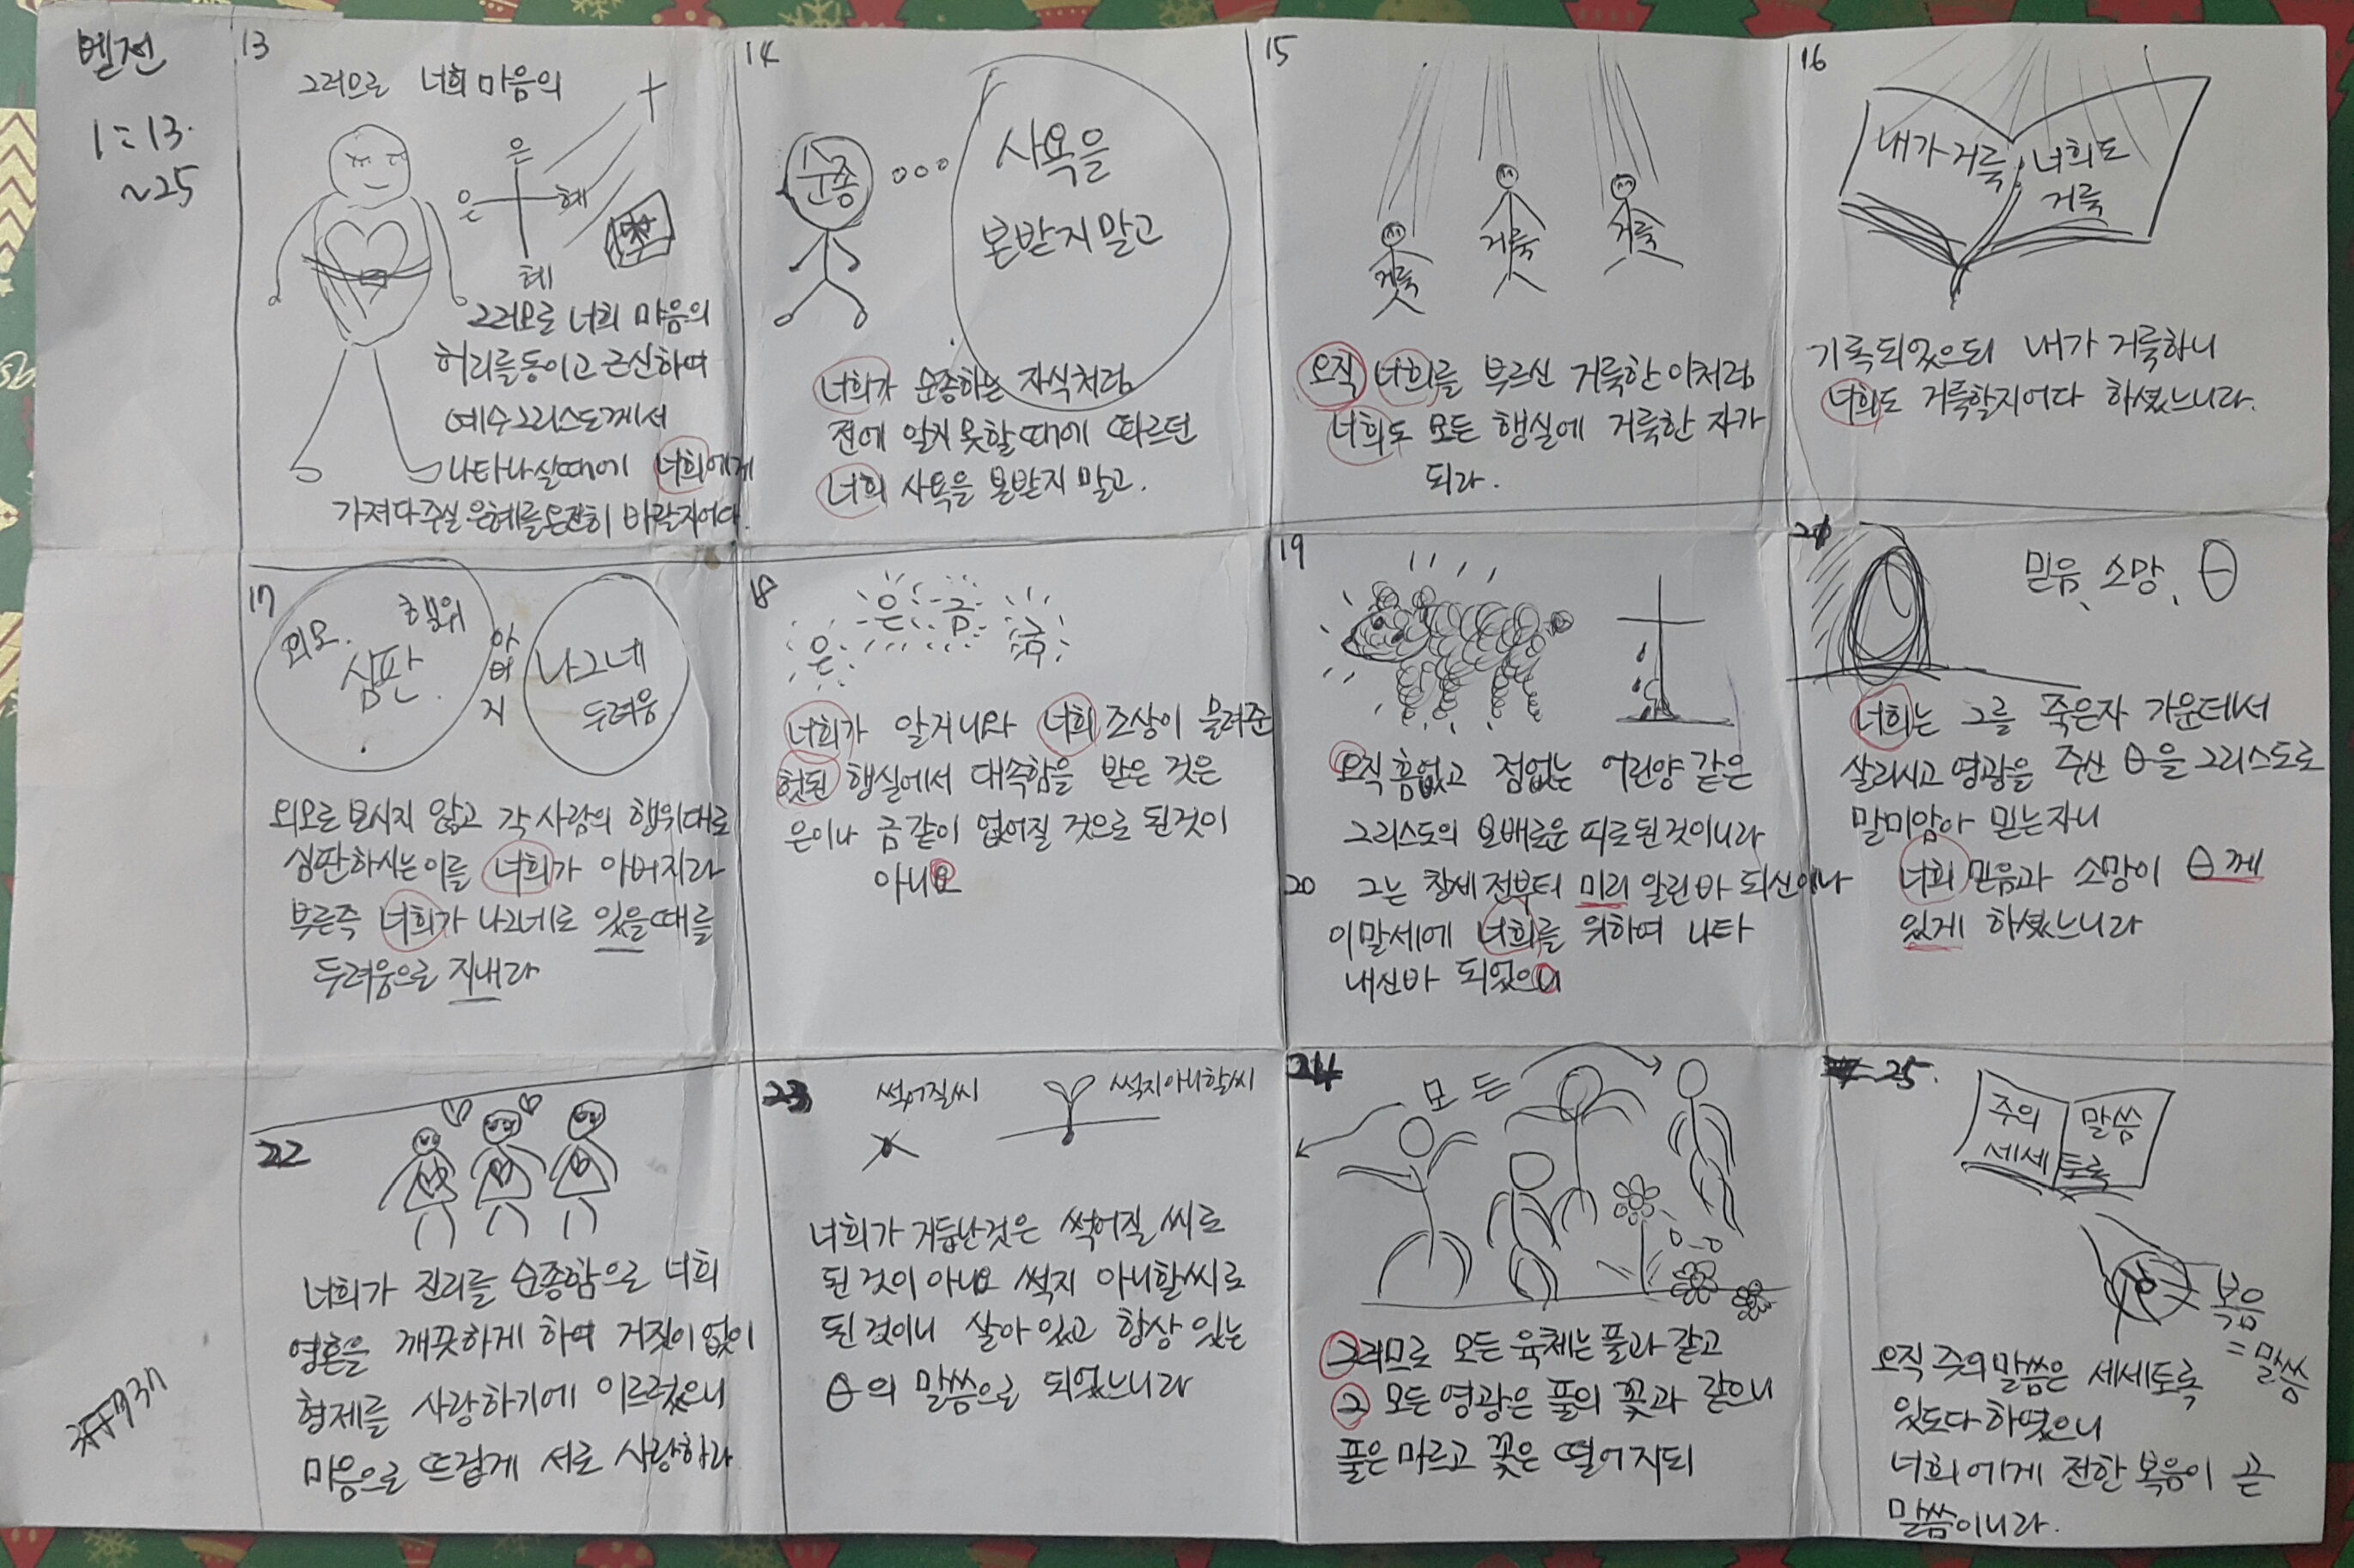 벧전
1:13.
~25
13
그러므로 너희 마음의
은
은 혜
혜
그러므로 너희 마음의
허리를동이고 근신하여
예수그리스도께서
나타나실때에 너희에게
가져다주실 은혜를온전히 바랄지어다.
14
순종
사욕을
본받지말고
너희가 순종하는 자식처럼
전에 알지 못할때에 따르던
너희 사욕을 본받지 말고.
15
거룩
거룩
거룩
오직 너희를 부르신 거룩한 이처럼
너희도 모든 행실에 거룩한 자가
되라.
16
내가 거룩 너희도
거룩
기록되었으되 내가 거룩하니
너희도 거룩할지어다 하셨느니라.
17
외모. 행위
심판
아버지
나그네
두려움
외모로 보시지 않고 각 사람의 행위대로
심판하시는이를 너희가 아버지라
부른즉 너희가 나그네로 있을때를
두려움으로 지내라
18
은 은 금 금
너희가 알거니와 너희 조상이 물려준
헛된 행실에서 대속함을 받은 것은
은이나 금같이 없어질 것으로 된것이
아니요
19
오직흠없고 점없는 어린양 같은
그리스도의 보배로운 피로된것이니라
20 그는 창세전부터 미리 알린바 되신이나
이말세에 너희를 위하여 나타
내신바 되었으니
21
믿음, 소망, θ
너희는 그를 죽은자 가운데서
살리시고 영광을 주신 θ을 그리스도로
말미암아 믿는자니
너희 믿음과 소망이 θ께
있게 하셨느니라
22
너희가 진리를 순종함으로 너희
영혼을 깨끗하게 하여 거짓이없이
형제를 사랑하기에 이르렀으니
마음으로 뜨겁게 서로 사랑하라
23
썩어질씨 썩지아니할씨
너희가 거듭난것은 썩어질 씨로
된 것이 아니요 썩지 아니할씨로
된것이니 살아 있고 항상 있는
θ의 말씀으로 되었느니라
24
모든
그러므로 모든 육체는 풀과 같고
그 모든 영광은 풀의 꽃과 같으니
풀은 마르고 꽃은 떨어지되
25.
주의 말씀
세세토록
복음
=말씀
오직 주의 말씀은 세세토록
있도다하였으니
너희에게 전한 복음이 곧
말씀이니라.